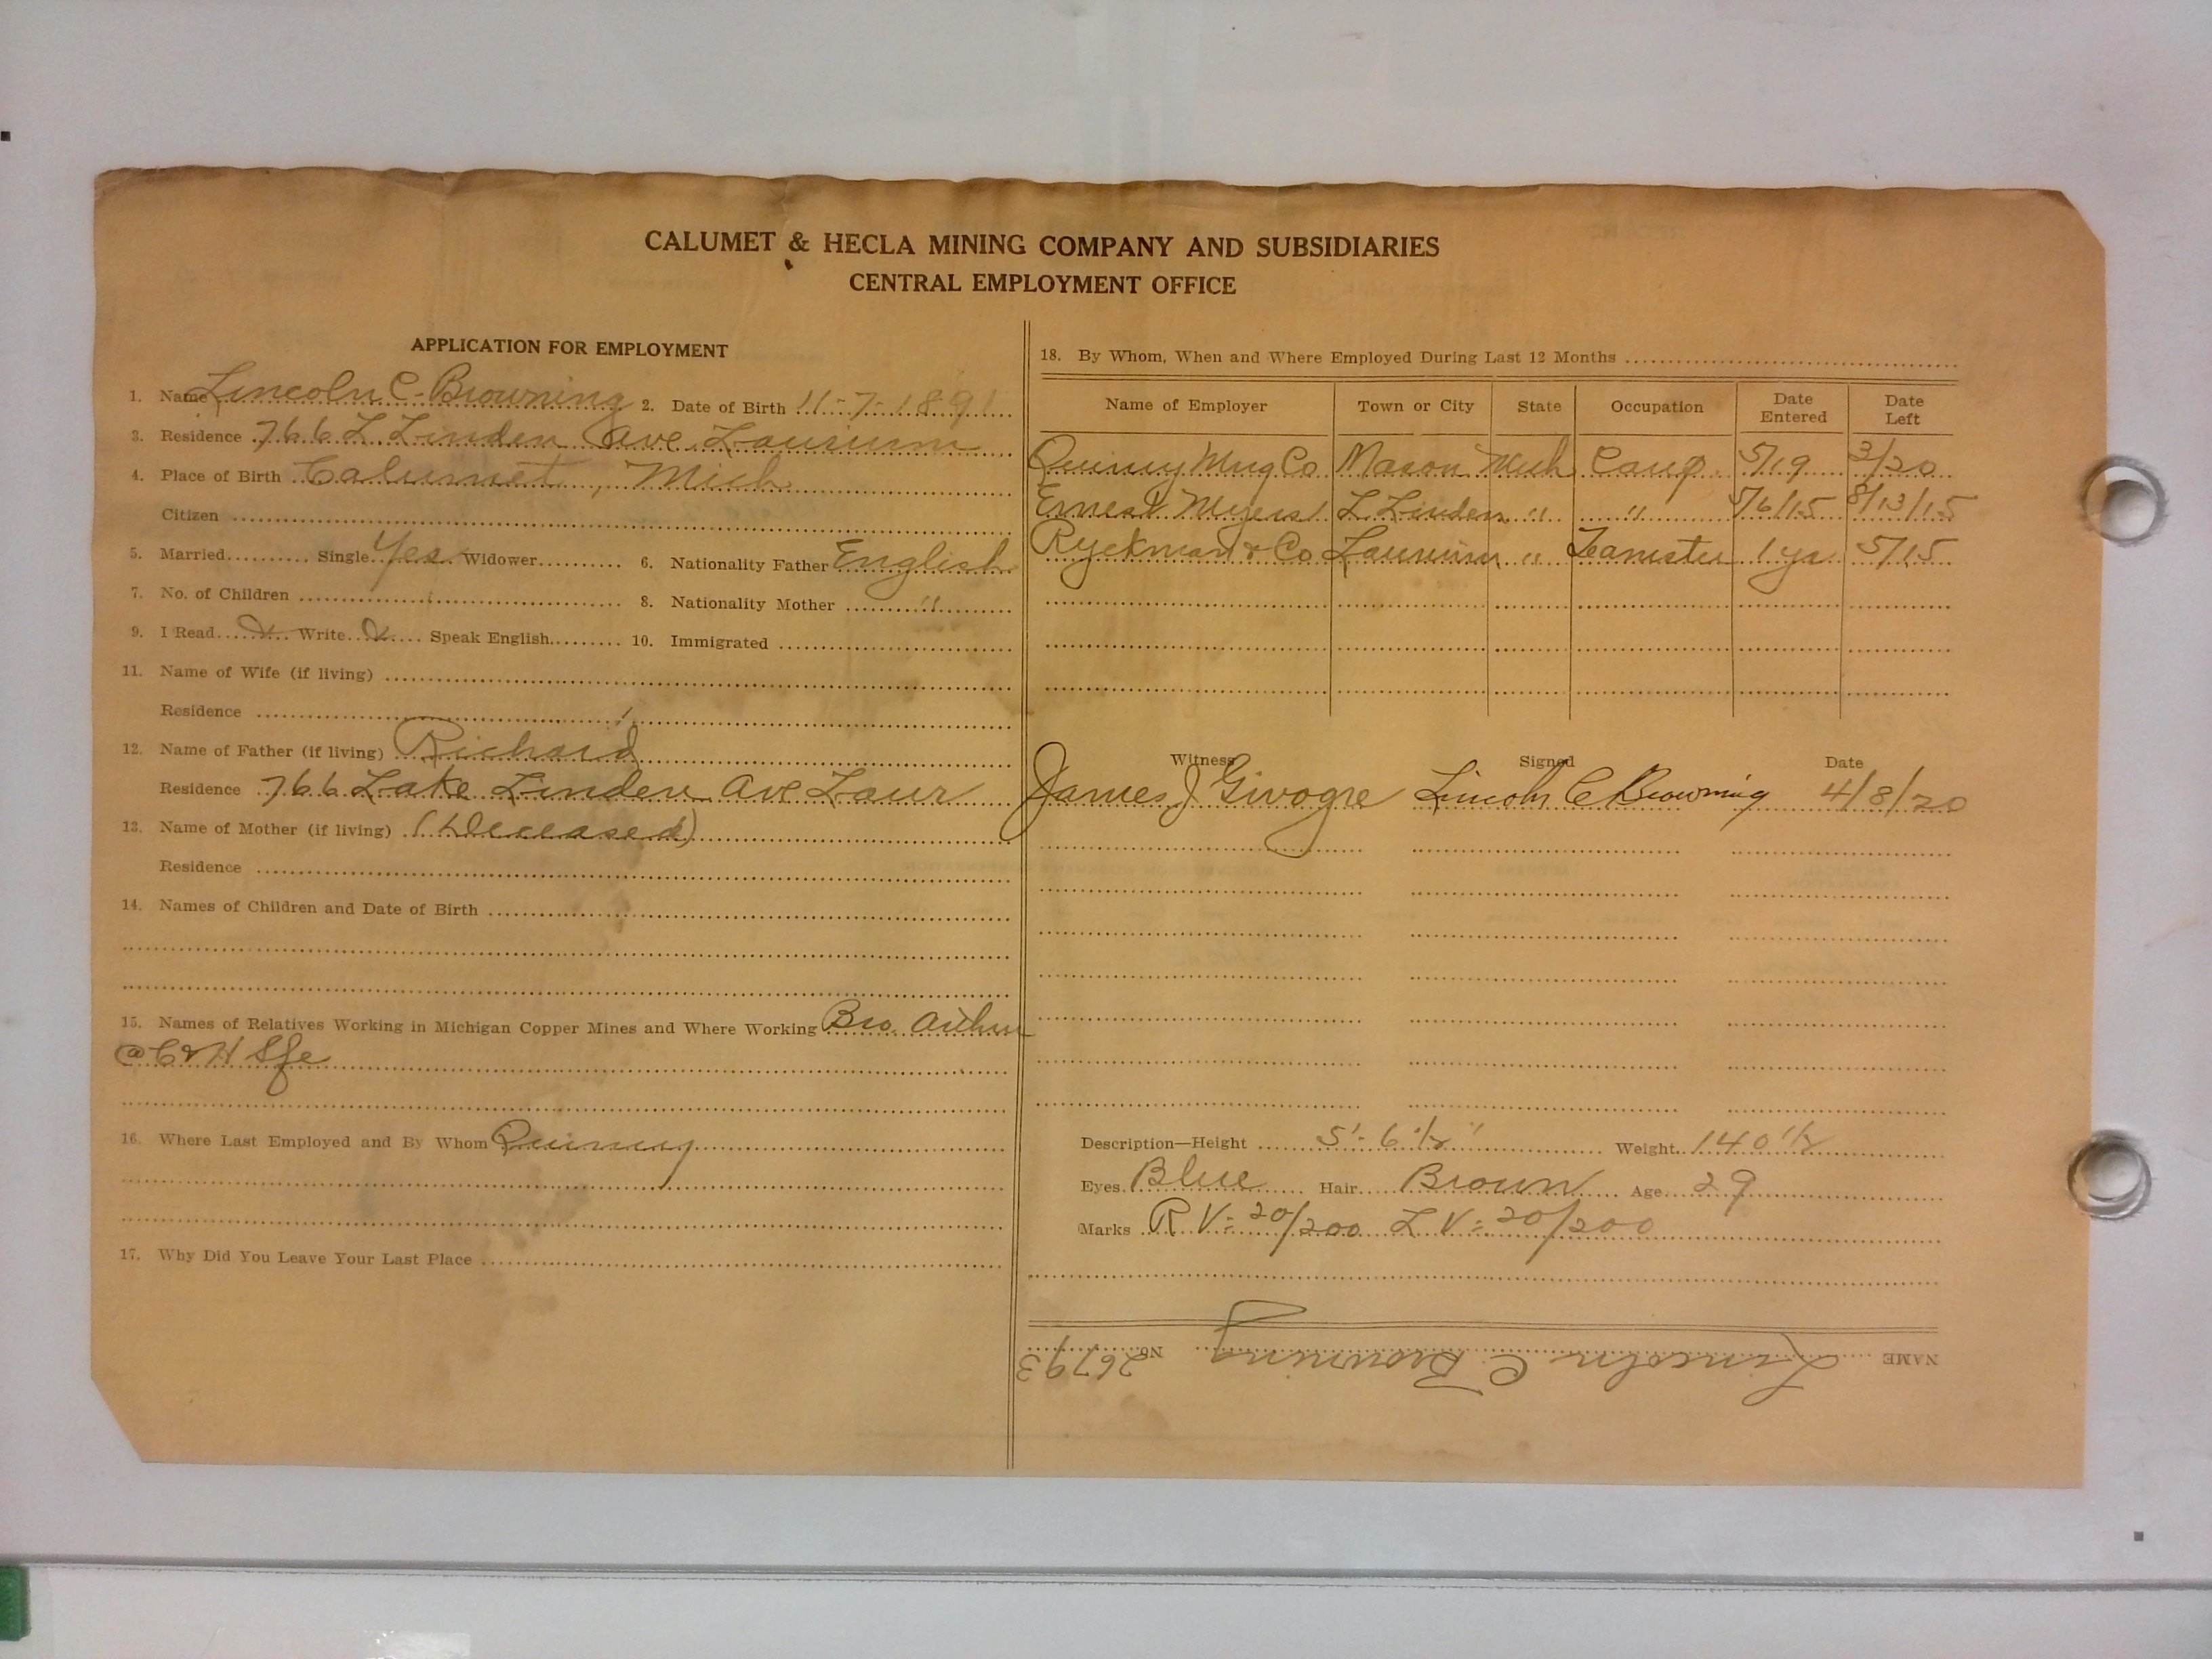 CALUMET & HECLA MINING COMPANY AND SUBSIDIARIES
CENTRAL EMPLOYMENT OFFICE
APPLICATION FOR EMPLOYMENT
1. Name Lincoln C. Browning 2. Date of Birth 11-7-1891
3. Residence 766 L Linden Ave. Laurium
4. Place of Birth Calumet, Mich
Citizen
5. Married Single Yes Widower 6. Nationality Father English
7. No. of Children 8. Nationality Mother "
9. I Read Write Speak English 10. Immigrated
11. Name of Wife (if living)
Residence
12. Name of Father (if living) Richard
Residence 766 Lake Linden Ave Laur
13. Name of Mother (if living) (Deceased)
Residence
14. Names of Children and Date of Birth
15. Names of Relatives Working in Michigan Copper Mines and Where Working Bro. Arthur
@ C & H
16. Where Last Employed and By Whom Quincy
17. Why Did You Leave Your Last Place
18. By Whom, When and Where Employed During Last 12 Months
Name of Employer Town or City State Occupation Date Entered Date Left
Quincy Mng Co Mason Mich Carp 5/19 3/20
Ernest Myers L Linden " " 5/6/15 8/13/15
Ryckman & Co Laurium " Teamster 1 yr 5/15
Witness Signed Date
James J Givogre Lincoln C Browning 4/8/20
Description—Height 5'-6 1/2" Weight 140 1/2
Eyes Blue Hair Brown Age 29
Marks R.V= 20/200 L.V= 20/200
NAME Lincoln C. Browning No. 26793